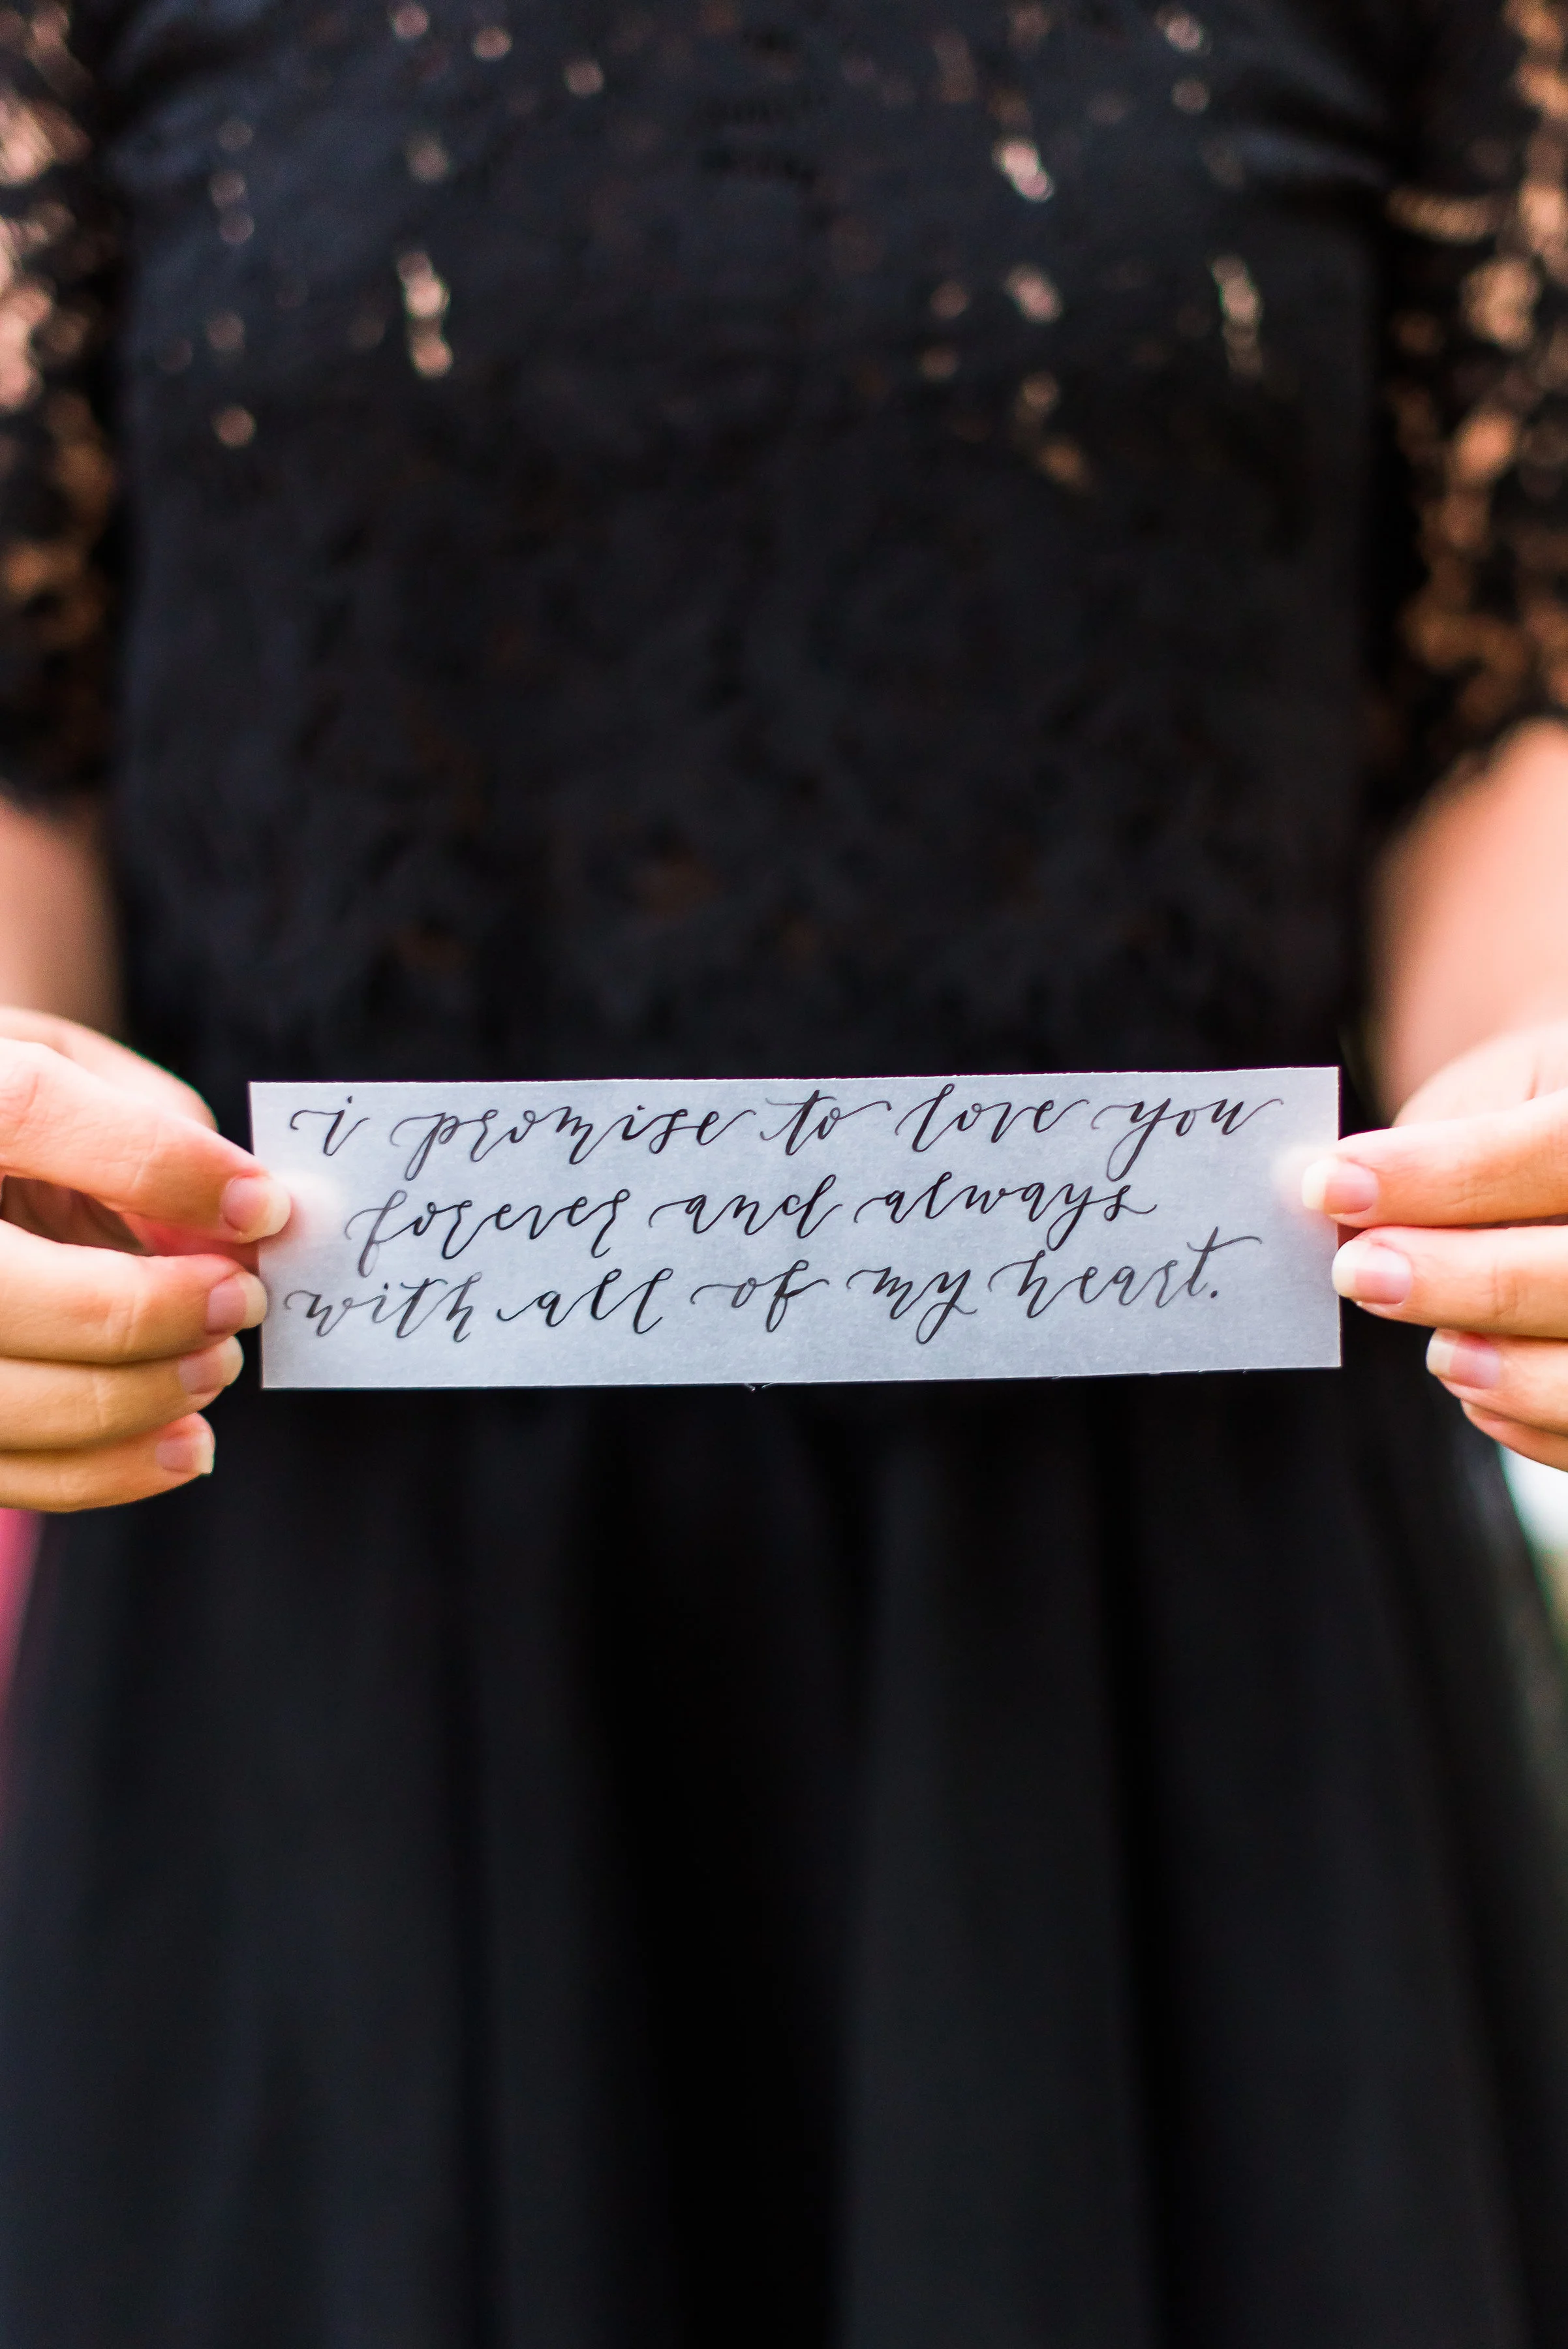 i promise to love you
forever and always
with all of my heart.